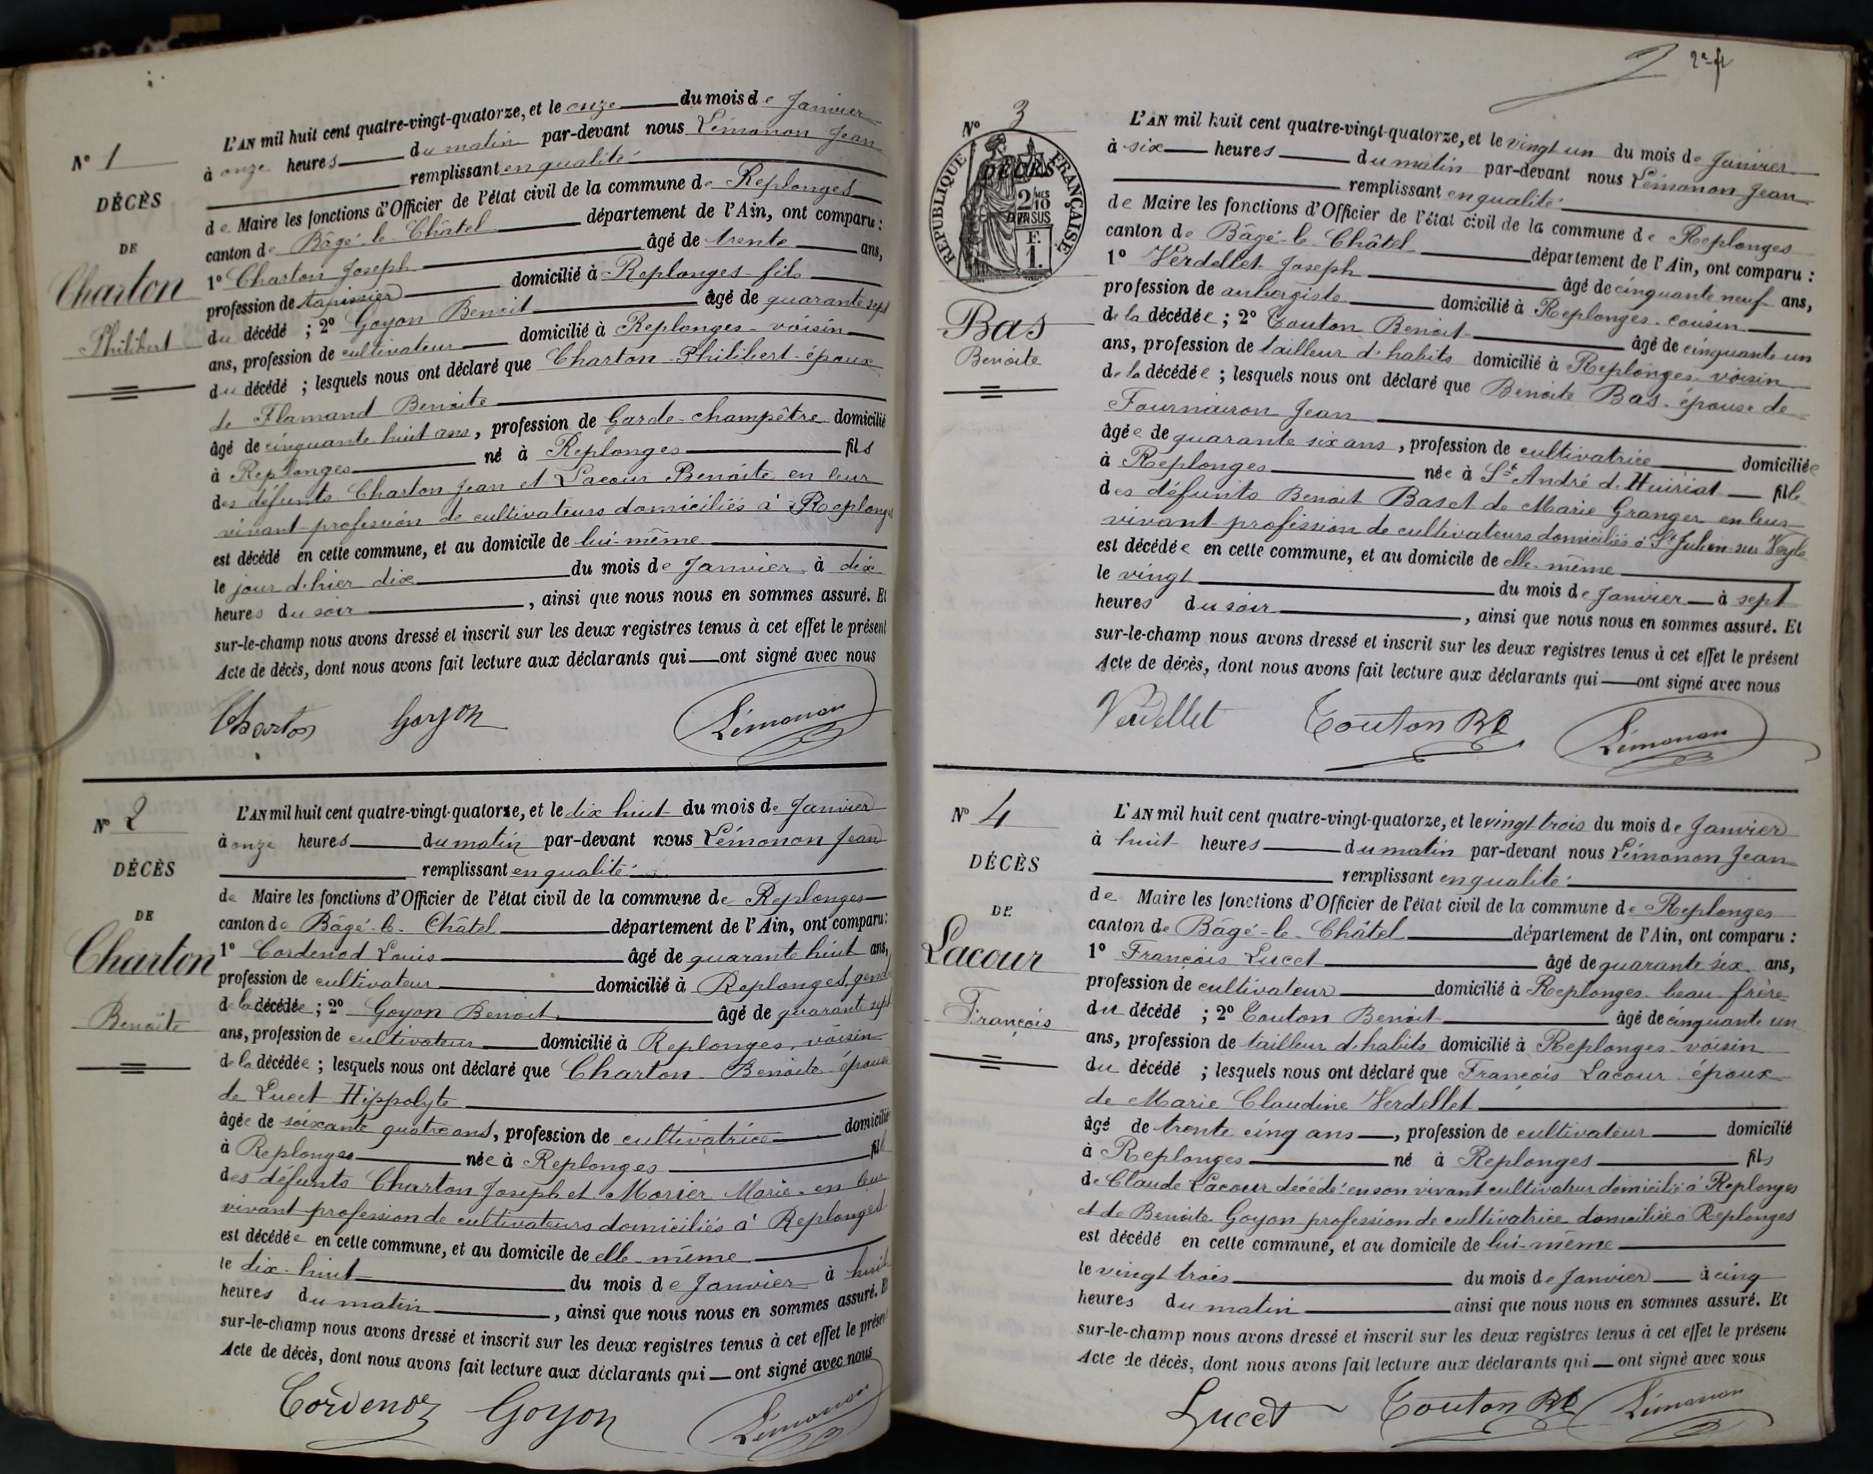 N° 1
DÉCÈS
DE
Charton
Philibert
L'AN mil huit cent quatre-vingt-quatorze, et le onze du mois de Janvier
à onze heures du matin par-devant nous Lémonon Jean
remplissant en qualité
de Maire les fonctions d'Officier de l'état civil de la commune de Replonges
canton de Bâgé-le-Châtel département de l'Ain, ont comparu :
1° Charton Joseph âgé de trente ans,
profession de tapissier domicilié à Replonges - fils
du décédé ; 2° Goyon Benoit âgé de quarante sept
ans, profession de cultivateur domicilié à Replonges - voisin
du décédé ; lesquels nous ont déclaré que Charton Philibert - époux
de Flamand Benoite
âgé de cinquante huit ans, profession de Garde-champêtre domicilié
à Replonges né à Replonges fils
des défunts Charton Jean et Lacour Benoite en leur
vivant profession de cultivateurs domiciliés à Replonges
est décédé en cette commune, et au domicile de lui-même
le jour d'hier dix du mois de Janvier à dix
heures du soir, ainsi que nous nous en sommes assuré. Et
sur-le-champ nous avons dressé et inscrit sur les deux registres tenus à cet effet le présent
Acte de décès, dont nous avons fait lecture aux déclarants qui ont signé avec nous
Charton Goyon Lémonon
N° 2
DÉCÈS
DE
Charton
Benoite
L'AN mil huit cent quatre-vingt-quatorze, et le dix huit du mois de Janvier
à onze heures du matin par-devant nous Lémonon Jean
remplissant en qualité
de Maire les fonctions d'Officier de l'état civil de la commune de Replonges
canton de Bâgé-le-Châtel département de l'Ain, ont comparu :
1° Cordenod Louis âgé de quarante huit ans,
profession de cultivateur domicilié à Replonges, gend
de la décédée ; 2° Goyon Benoit âgé de quarante sept
ans, profession de cultivateur domicilié à Replonges, voisin
de la décédée ; lesquels nous ont déclaré que Charton Benoite épouse
de Lucet Hippolyte
âgée de soixante quatre ans, profession de cultivatrice domicilié
à Replonges née à Replonges fil
des défunts Charton Joseph et Morier Marie en leur
vivant profession de cultivateurs domiciliés à Replonges
est décédée en cette commune, et au domicile de elle-même
le dix-huit du mois de Janvier à huit
heures du matin, ainsi que nous nous en sommes assuré. Et
sur-le-champ nous avons dressé et inscrit sur les deux registres tenus à cet effet le présent
Acte de décès, dont nous avons fait lecture aux déclarants qui ont signé avec nous
Cordenod Goyon Lémonon
2
N° 3
DÉCÈS
RÉPUBLIQUE FRANÇAISE
2/10 EN SUS
F.
1.
Bas
Benoite
L'AN mil huit cent quatre-vingt-quatorze, et le vingt un du mois de Janvier
à six heures du matin par-devant nous Lémonon Jean
remplissant en qualité
de Maire les fonctions d'Officier de l'état civil de la commune de Replonges
canton de Bâgé-le-Châtel département de l'Ain, ont comparu :
1° Verdellet Joseph âgé de cinquante neuf ans,
profession de aubergiste domicilié à Replonges - cousin
de la décédée ; 2° Touton Benoit âgé de cinquante un
ans, profession de tailleur d'habits domicilié à Replonges - voisin
de la décédée ; lesquels nous ont déclaré que Benoite Bas - épouse de
Fournairon Jean
âgée de quarante six ans, profession de cultivatrice domiciliée
à Replonges née à St André d'Huiriat fille
des défunts Benoit Bas et de Marie Granger en leur
vivant profession de cultivateurs domiciliés à St Julien sur Veyle
est décédée en cette commune, et au domicile de elle-même
le vingt du mois de Janvier à sept
heures du soir, ainsi que nous nous en sommes assuré. Et
sur-le-champ nous avons dressé et inscrit sur les deux registres tenus à cet effet le présent
Acte de décès, dont nous avons fait lecture aux déclarants qui ont signé avec nous
Verdellet Touton Bt Lémonon
N° 4
DÉCÈS
DE
Lacour
François
L'AN mil huit cent quatre-vingt-quatorze, et le vingt trois du mois de Janvier
à huit heures du matin par-devant nous Lémonon Jean
remplissant en qualité
de Maire les fonctions d'Officier de l'état civil de la commune de Replonges
canton de Bâgé-le-Châtel département de l'Ain, ont comparu :
1° François Lucet âgé de quarante six ans,
profession de cultivateur domicilié à Replonges - beau-frère
du décédé ; 2° Touton Benoit âgé de cinquante un
ans, profession de tailleur d'habits domicilié à Replonges - voisin
du décédé ; lesquels nous ont déclaré que François Lacour époux
de Marie Claudine Verdellet
âgé de trente cinq ans, profession de cultivateur domicilié
à Replonges né à Replonges fils
de Claude Lacour décédé en son vivant cultivateur domicilié à Replonges
et de Benoite Goyon profession de cultivatrice domiciliée à Replonges
est décédé en cette commune, et au domicile de lui-même
le vingt trois du mois de Janvier à cinq
heures du matin ainsi que nous nous en sommes assuré. Et
sur-le-champ nous avons dressé et inscrit sur les deux registres tenus à cet effet le présent
Acte de décès, dont nous avons fait lecture aux déclarants qui ont signé avec nous
Lucet Touton Bt Lémonon